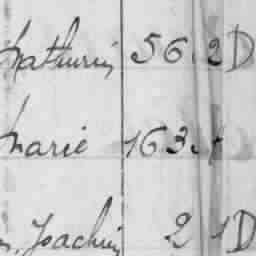 Mathurin 56.2 D
Marie 163.
Joachim 2 1 D